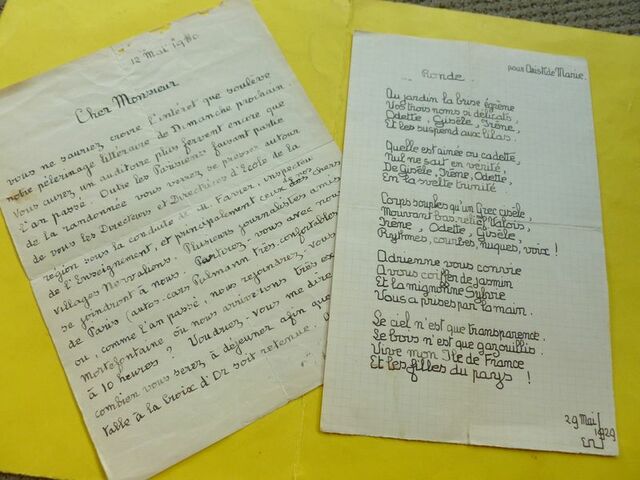 12 Mai 19
Cher Monsieur
vous ne sauriez croire l'intérêt que soulève
notre pèlerinage littéraire de Dimanche prochain.
Vous aurez un auditoire plus fervent encore que
l'an passé. Outre les Parisiens faisant partie
de la randonnée vous verrez se presser autour
de vous les Directeurs et Directrices d'Ecole de la
région sous la conduite de M. Favier, inspecteur
de l'Enseignement, et principalement ceux des chers
villages Nervaliens. Plusieurs journalistes amis
se joindront à nous. Partirez-vous avec nous
de Paris (autos-cars Pulmann très confortables)
ou, comme l'an passé, nous rejoindrez-vous à
Mortefontaine où nous arriverons très exactement
à 10 heures ? Voudrez-vous me dire
combien vous serez à déjeuner afin que
table à la Croix d'Or soit retenue.
pour Aristide Marie
Ronde
Au jardin la brise égrène
Vos trois noms si délicats,
Odette, Gisèle, Irène,
Et les suspend aux lilas.
Quelle est ainée ou cadette,
Nul ne sait en vérité,
De Gisèle, Irène, Odette,
En la svelte trinité.
Corps souples qu'un Grec cisèle,
Mouvant bas-relief Valois,
Irène, Odette, Gisèle,
Rythmes, courbes, nuques, voix !
Adrienne vous convie
A vous coiffer de jasmin
Et la mignonne Sylvie
Vous a prises par la main.
Le ciel n'est que transparence.
Le bois n'est que gazouillis.
Vive mon Ile de France
Et les filles du pays !
29 Mai
1929